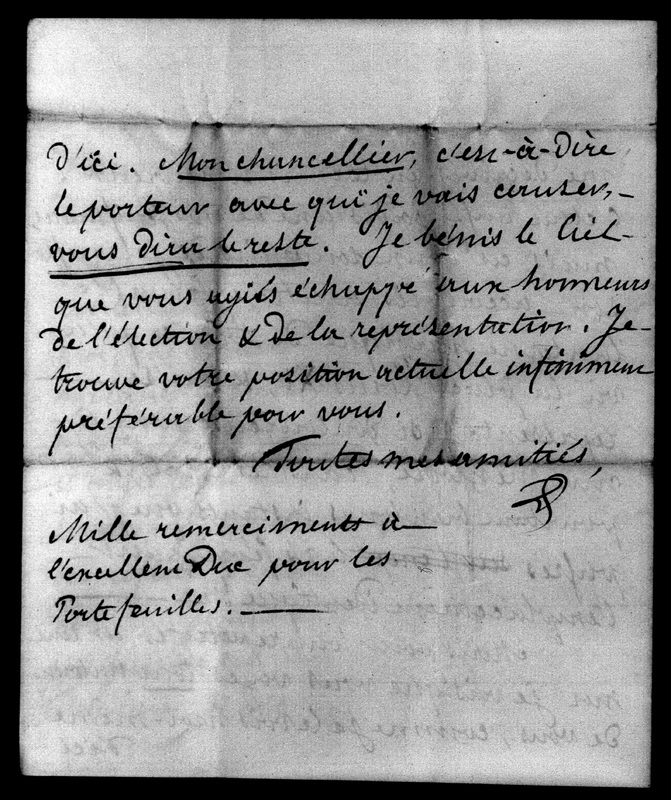 d'ici. Mon chancellier, c'est-à-dire
le porteur avec quï je vais causer,
vous dira le reste. Je bénis le Ciel
que vous ayiés échappé aux honneurs
de l'élection & de la représentation. Je
trouve votre position actuelle infiniment
préférable pour vous.
Toutes mes amitiés,
Mille remerciments à
l'excellent Duc pour les
Portefeuilles.